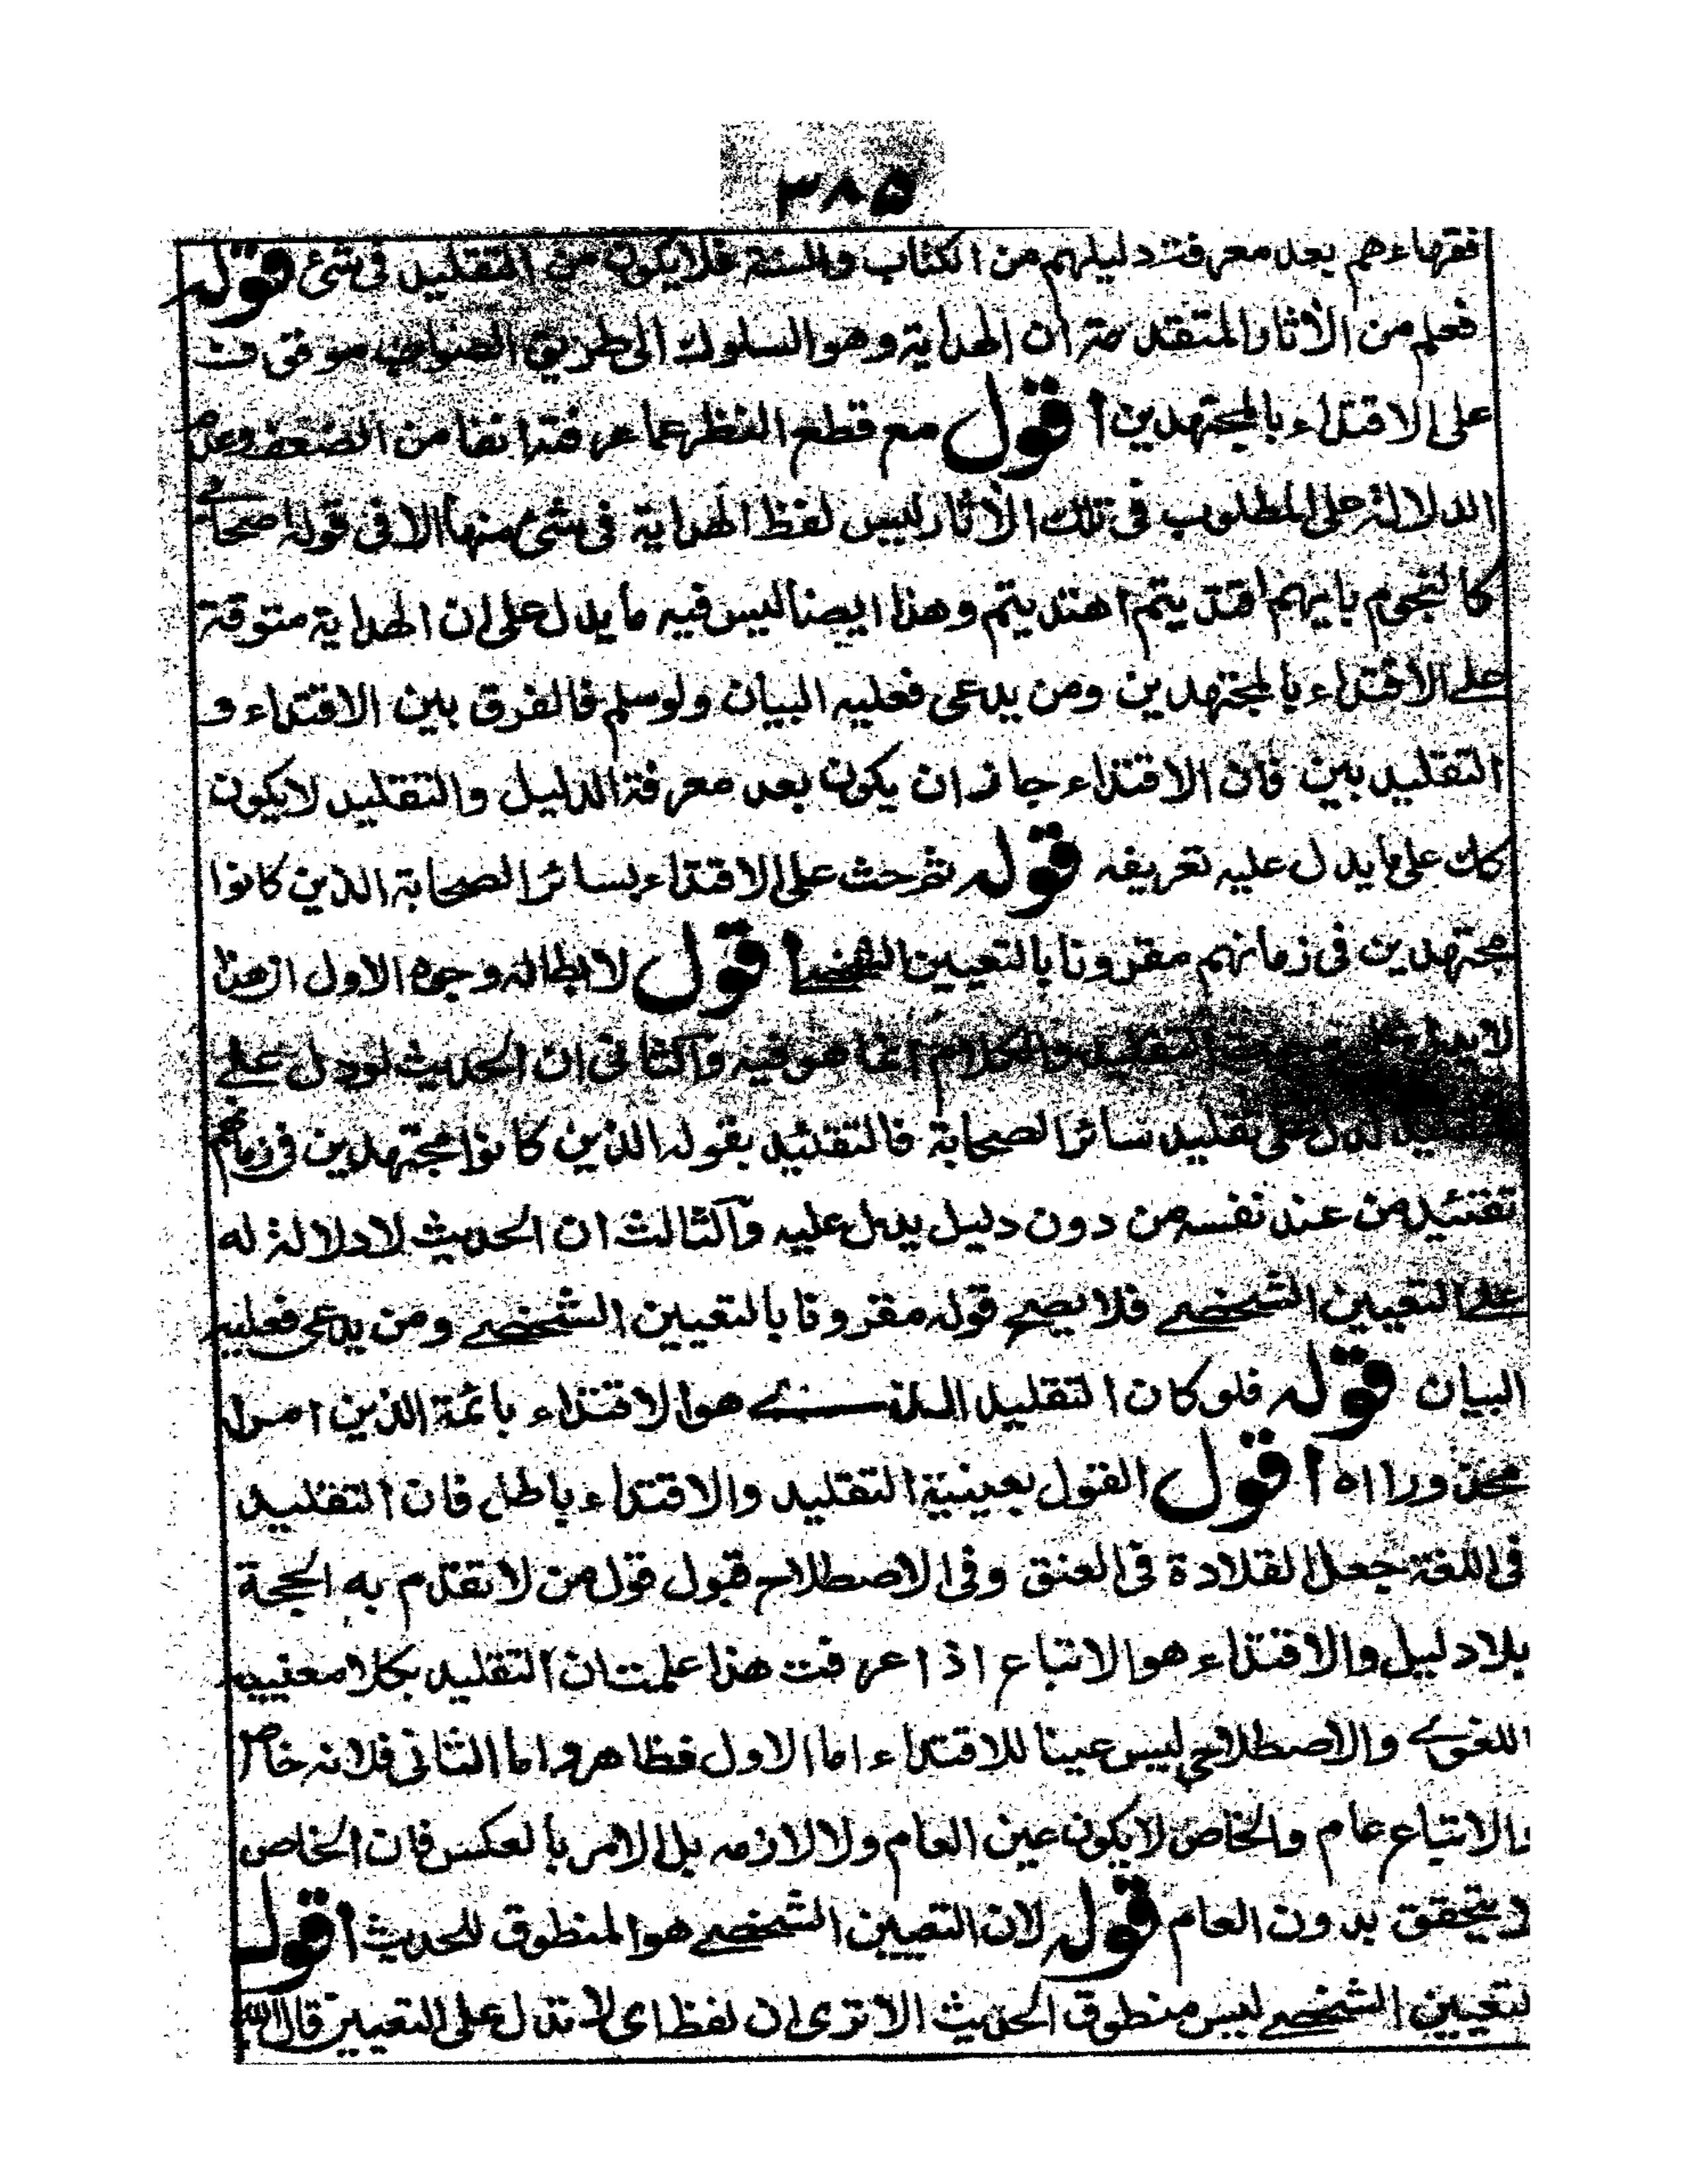 ٣٨٥
فقهاءهم بعد معرفة دليلهم من الكتاب والسنة فلا يكون من التقليد فى شئ قوله
فعلم من الاثار المتقدمة ان الهداية وهو السلوك الى طريق الصواب موقوفة
على الاقتداء بالمجتهدين اقول مع قطع النظر عما عرفته انفا من الضعف وعدم
الدلالة على المطلوب فى تلك الاثار ليس لفظ الهداية فى شئ منها الا فى قوله اصحابے
كالنجوم بايهم اقتديتم اهتديتم وهذا ايضا ليس فيه ما يدل على ان الهداية متوقة
علے الاقتداء بالمجتهدين ومن يدعى فعليه البيان ولو سلم فالفرق بين الاقتداء و
التقليد بين فان الاقتداء جاز ان يكون بعد معرفة الدليل والتقليد لا يكون
كك على ما يدل عليه تعريفه قوله ثم حث على الاقتداء بسائر الصحابة الذين كانوا
مجتهدين فى زمانهم مقرونا بالتعيين الشخصے اقول لابطاله وجوه الاول ان هذا
لا يدل على وجوب التقليد والكلام انما هو فيه والثانى ان الحديث لو دل علے
التقليد لدل على تقليد سائر الصحابة فالتقئيد بقوله الذين كانوا مجتهدين فى زمانهم
تقئيد من عند نفسه من دون دليل يدل عليه والثالث ان الحديث لا دلالة له
علے التعيين الشخصے فلا يصح قوله مقرونا بالتعيين الشخصے ومن يدعى فعليه
البيان قوله فلو كان التقليد الذے هو الاقتداء بائمة الذين امرا
محذورا اه اقول القول بعينية التقليد والاقتداء باطل فان التقليد
فى اللغة جعل القلادة فى العنق وفى الاصطلاح قبول قول من لا تقدم به الحجة
بلا دليل والاقتداء هو الاتباع اذا عرفت هذا علمت ان التقليد بكلا معنييه
اللغوے والاصطلاحى ليس عينا للاقتداء اما الاول فظاهر واما الثانى فلانه خاص
والاتباع عام والخاص لا يكون عين العام ولا لازمه بل الامر بالعكس فان الخاص
يتحقق بدون العام قوله لان التعيين الشخصے هو المنطوق للحديث اقول
لتعيين الشخصے ليس منطوق الحديث الا ترى ان لفظ اى لا تدل على التعيين قال الله